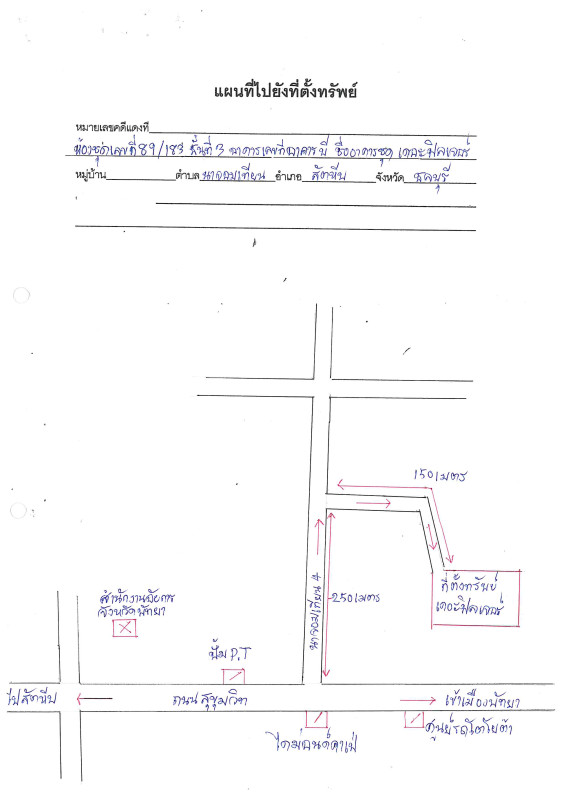 แผนที่ไปยังที่ตั้งทรัพย์
หมายเลขคดีแดงที่
ห้องชุดเลขที่ 89/183 ชั้นที่ 3 อาคารเลขที่ อาคารบี ชื่ออาคารชุด เดอะวิลเลจร์
หมู่บ้าน ตำบล นาจอมเทียน อำเภอ สัตหีบ จังหวัด ชลบุรี
150 เมตร
สำนักงานอัยการ
จังหวัดพัทยา
นาจอมเทียน 4
250 เมตร
ที่ตั้งทรัพย์
ปั้ม P.T
ไปสัตหีบ
ถนน สุขุมวิท
เข้าเมืองพัทยา
ไดม่อนด์คาเฟ่
ศูนย์รถโตโยต้า